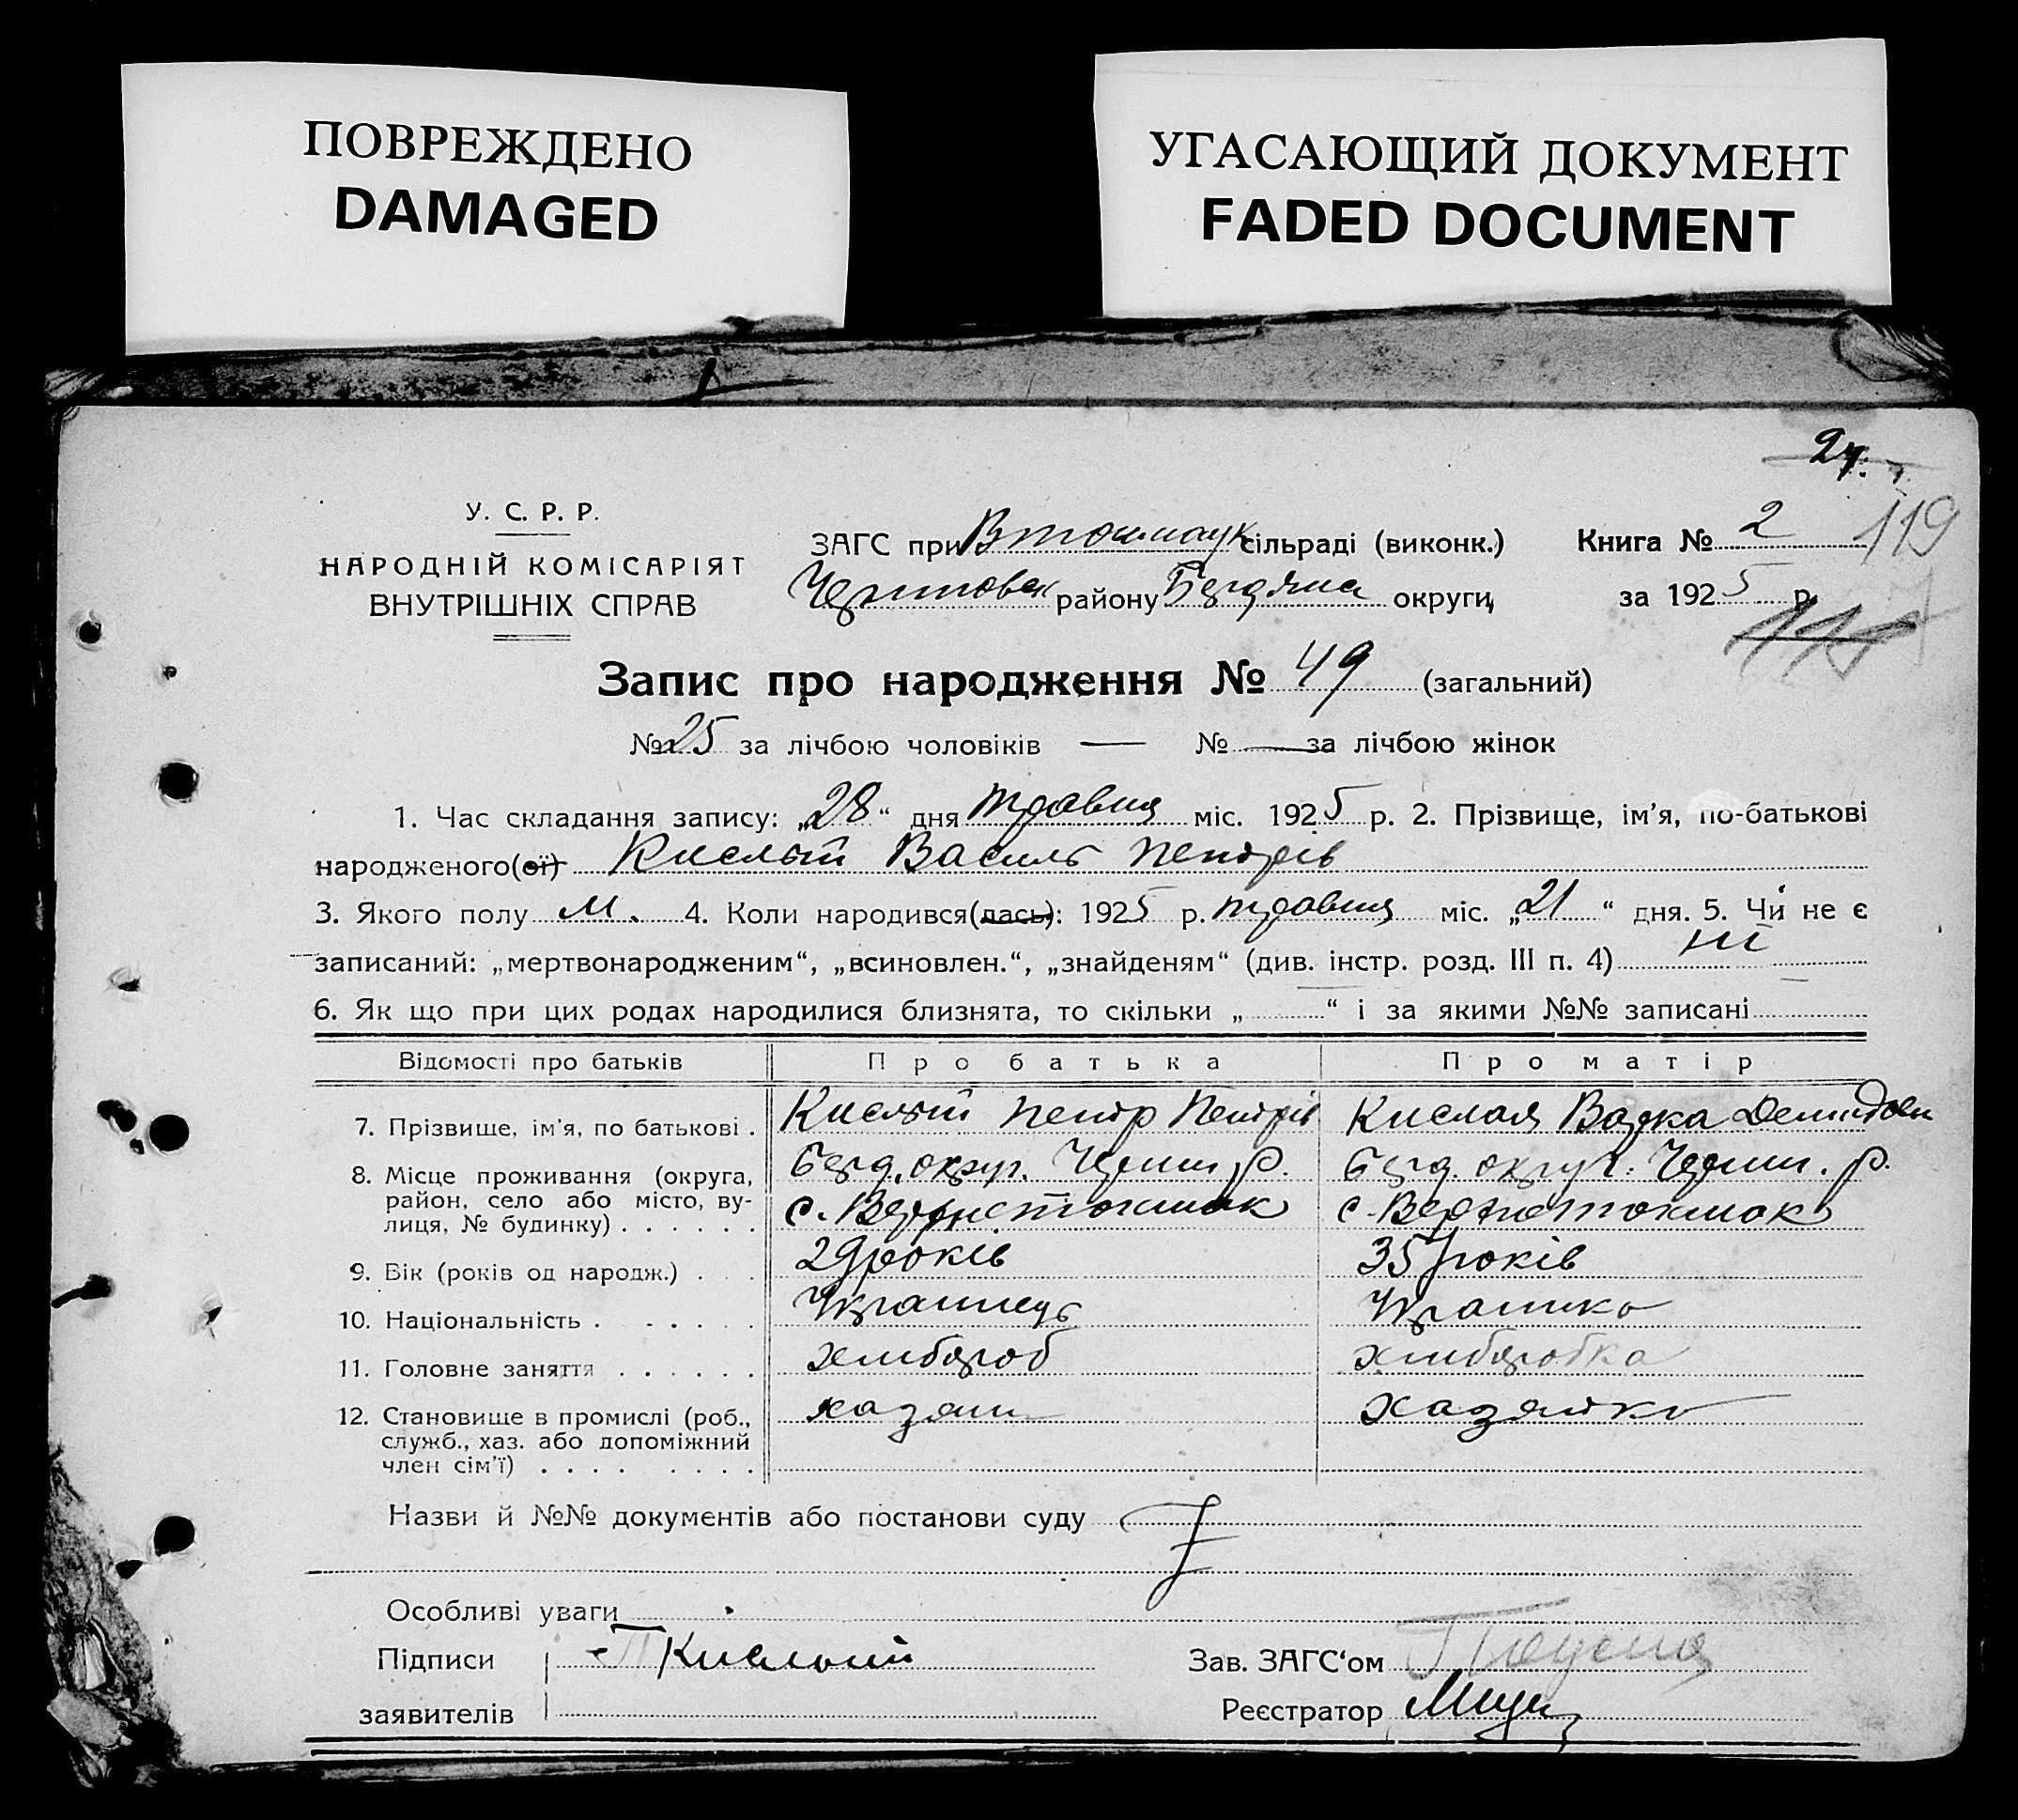 ПОВРЕЖДЕНО
DAMAGED
УГАСАЮЩИЙ ДОКУМЕНТ
FADED DOCUMENT
24.
119
У. С. Р. Р.
НАРОДНІЙ КОМІСАРІЯТ
ВНУТРІШНІХ СПРАВ
ЗАГС при Втокмацк сільраді (виконк.) Книга № 2
району округи, за 1925 р.
Запис про народження № 49 (загальний)
№ 25 за лічбою чоловіків — № — за лічбою жінок
1. Час складання запису: „28“ дня травня міс. 1925 р. 2. Прізвище, ім'я, по-батькові
народженого(ої) Кислый Василь Петрів
3. Якого полу м. 4. Коли народився(лась): 1925 р. травня міс. „21“ дня. 5. Чи не є
записаний: „мертвонародженим“, „всиновлен.“, „знайденям“ (див. інстр. розд. III п. 4) ні
6. Як що при цих родах народилися близнята, то скільки „ “ і за якими №№ записані
Відомості про батьків Про батька Про матір
7. Прізвище, ім'я, по батькові . Кислый Петр Петрів Кислая Варка Демидовн
8. Місце проживання (округа, район, село або місто, вулиця, № будинку) . . . . . . Берд. округ. Черниг. р. с. Верхнетокмак Берд. округ. Черниг. р. с. Верхнетокмак
9. Вік (років од народж.) . . . 29 років 35 років
10. Національність . . . . . . Українець Українка
11. Головне заняття . . . . . . хлибороб хлиборобка
12. Становище в промислі (роб., служб., хаз. або допоміжний член сім'ї) . . . . . . . . хазяин хазяйка
Назви й №№ документів або постанови суду
Особливі уваги
Підписи П Кислый Зав. ЗАГС'ом
заявителів Реєстратор